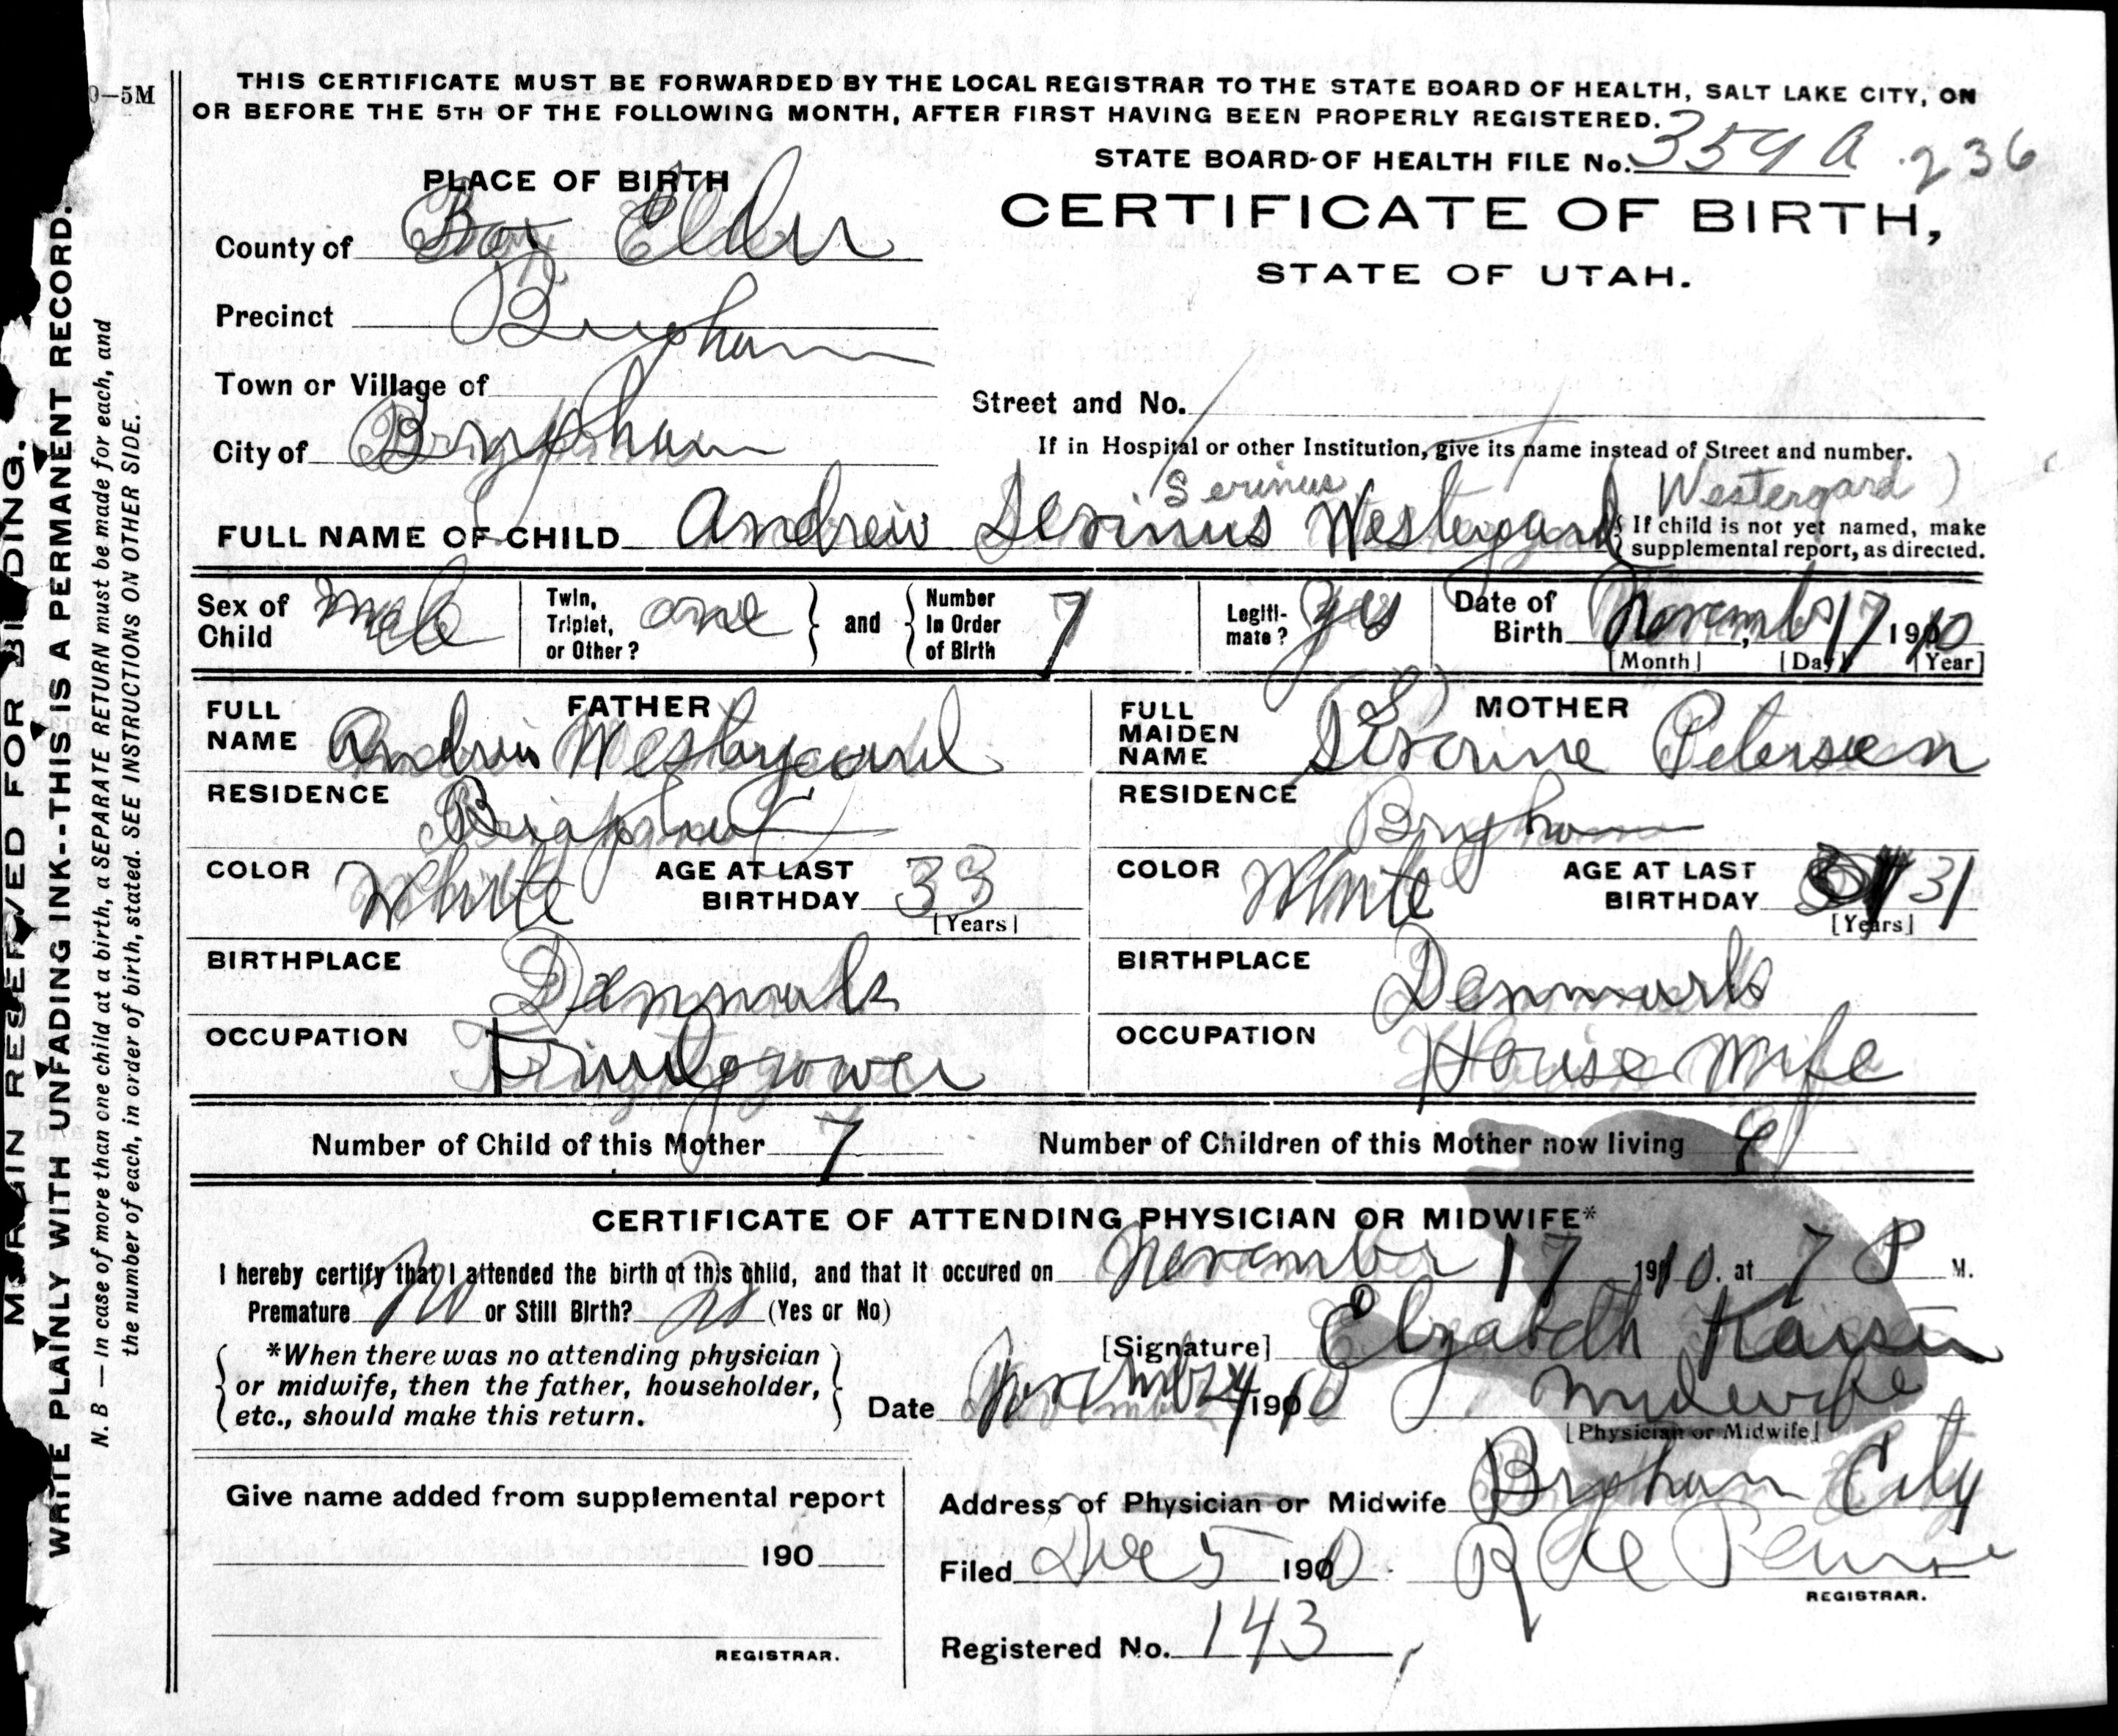 0-5M
THIS CERTIFICATE MUST BE FORWARDED BY THE LOCAL REGISTRAR TO THE STATE BOARD OF HEALTH, SALT LAKE CITY, ON
OR BEFORE THE 5TH OF THE FOLLOWING MONTH, AFTER FIRST HAVING BEEN PROPERLY REGISTERED.
STATE BOARD OF HEALTH FILE No. 359 A 236
CERTIFICATE OF BIRTH,
STATE OF UTAH.
PLACE OF BIRTH
County of Box Elder
Precinct Brigham
Town or Village of
City of Brigham
Street and No.
If in Hospital or other Institution, give its name instead of Street and number.
Serinus Westergard )
FULL NAME OF CHILD Andrew Serinus Westergard
{ If child is not yet named, make
supplemental report, as directed.
Sex of Child male
Twin, Triplet, or Other? one } and { Number In Order of Birth 7
Legiti-mate? yes
Date of Birth November, 17 1910
[Month] [Day] [Year]
FATHER
FULL NAME Andrew Westergaard
RESIDENCE Brigham
COLOR White AGE AT LAST BIRTHDAY 33
[Years]
BIRTHPLACE Denmark
OCCUPATION Fruitgrower
MOTHER
FULL MAIDEN NAME Petersen
RESIDENCE Brigham
COLOR White AGE AT LAST BIRTHDAY 31
[Years]
BIRTHPLACE Denmark
OCCUPATION House Wife
Number of Child of this Mother 7 Number of Children of this Mother now living
CERTIFICATE OF ATTENDING PHYSICIAN OR MIDWIFE*
I hereby certify that I attended the birth of this child, and that it occured on November 17 1910. at 7 P M.
Premature No or Still Birth? No (Yes or No)
{ *When there was no attending physician
or midwife, then the father, householder,
etc., should make this return. }
[Signature] Elizabeth
Midwife
[Physician or Midwife]
Date November 24 1910
Address of Physician or Midwife Brigham City
Filed Dec 5 1900
REGISTRAR.
Registered No. 143
Give name added from supplemental report
190
REGISTRAR.
MARGIN RESERVED FOR BINDING.
WRITE PLAINLY WITH UNFADING INK--THIS IS A PERMANENT RECORD.
N. B — In case of more than one child at a birth, a SEPARATE RETURN must be made for each, and
the number of each, in order of birth, stated. SEE INSTRUCTIONS ON OTHER SIDE.